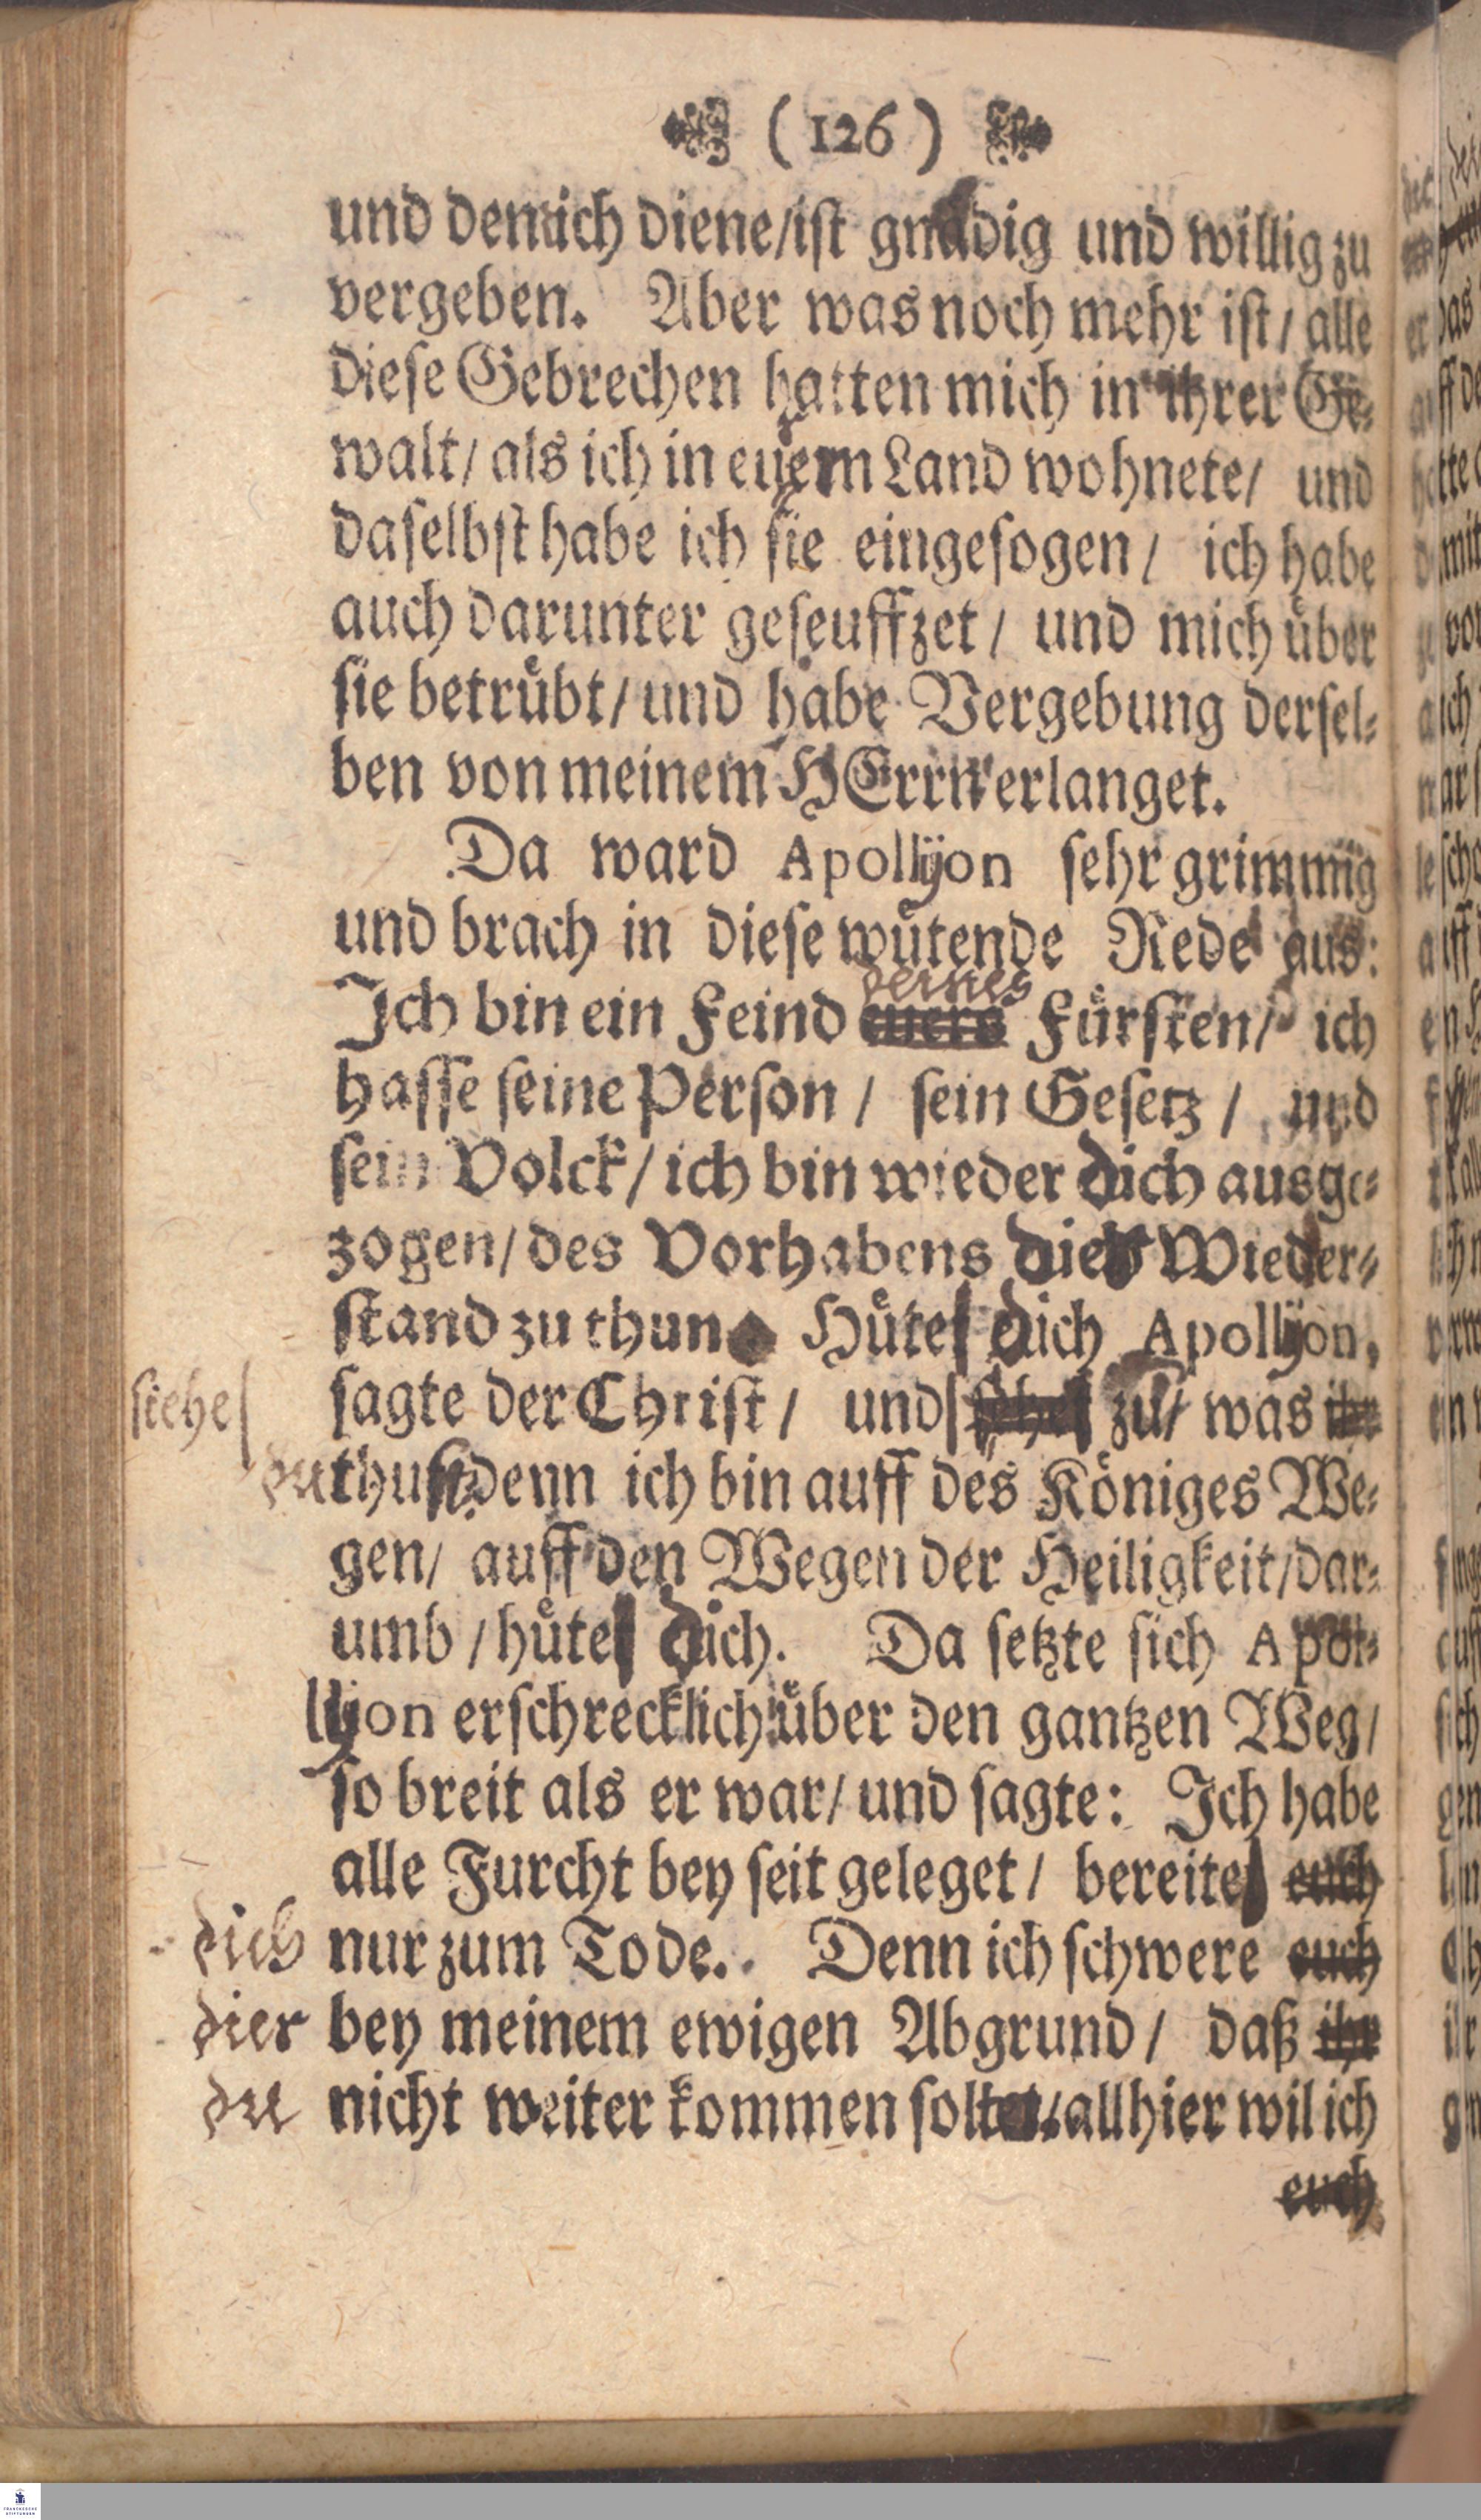 ( 126 )
und dem ich diene/ist gnädig und willig zu
vergeben. Aber was noch mehr ist/ alle
diese Gebrechen hatten mich in ihrer Ge-
walt/ als ich in euerm Land wohnete/ und
daselbst habe ich sie eingesogen/ ich habe
auch darunter geseuffzet/ und mich über
sie betrübt/ und habe Vergebung dersel-
ben von meinem HErrn erlanget.
Da ward Apollyon sehr grimmig
und brach in diese wütende Rede aus:
deines
Ich bin ein Feind euers Fürsten/ ich
hasse seine Person/ sein Gesetz/ und
sein Volck/ ich bin wieder dich ausge-
zogen/ des Vorhabens dier Wieder-
stand zu thun. Hüte dich Apollyon,
siehe sagte der Christ/ und sehet zu/ was ihr
du thust denn ich bin auff des Königes We-
gen/ auff den Wegen der Heiligkeit/dar-
umb/hüte dich. Da setzte sich Apol-
lyon erschrecklich über den gantzen Weg/
so breit als er war/ und sagte: Ich habe
alle Furcht bey seit geleget/ bereite euch
dich nur zum Tode. Denn ich schwere euch
dier bey meinem ewigen Abgrund/ daß ihr
du nicht weiter kommen sollet/allhier wil ich
euch
FRANCKESCHE STIFTUNGEN